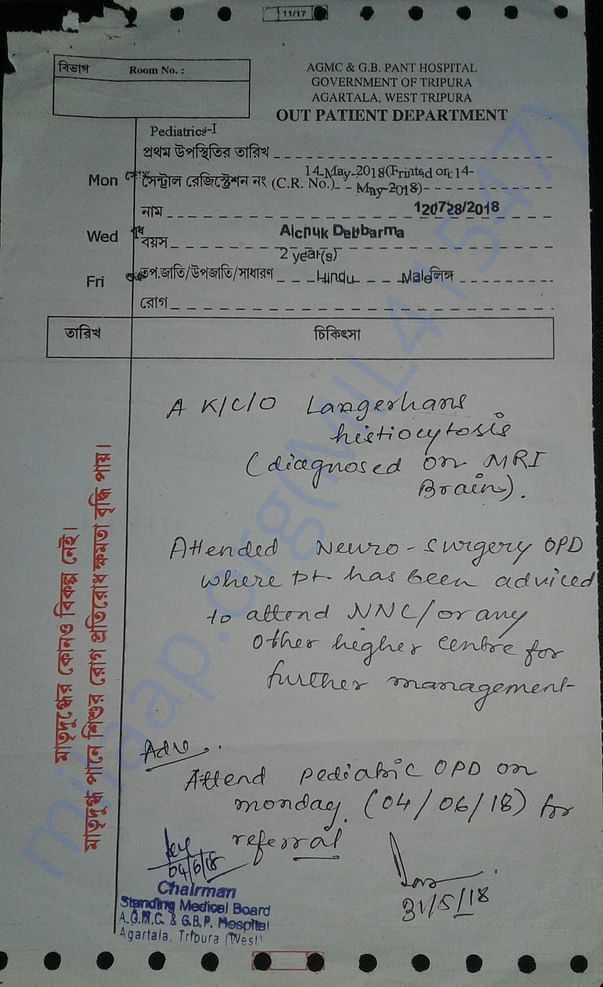 11/17
বিভাগ Room No. :
AGMC & G.B. PANT HOSPITAL
GOVERNMENT OF TRIPURA
AGARTALA, WEST TRIPURA
OUT PATIENT DEPARTMENT
Pediatrics-I
প্রথম উপস্থিতির তারিখ
14-May-2018(Printed on: 14-
Mon সেন্ট্রাল রেজিস্ট্রেশন নং (C.R. No.) May-2018)
নাম 120728/2018
Wed বয়স Aichuk Debbarma
2 year(s)
Fri তপ.জাতি/উপজাতি/সাধারণ Hindu Male লিঙ্গ
রোগ
তারিখ চিকিৎসা
A K/C/O Langerhans
histiocytosis
(diagnosed on MRI
Brain).
Attended Neuro-surgery OPD
where pt. has been adviced
to attend NNC/or any
other higher centre for
further management
Adv.
Attend pediatric OPD on
monday (04/06/18) for
referral
04/6/18
31/5/18
Chairman
Standing Medical Board
A.G.M.C. & G.B.P. Hospital
Agartala, Tripura (West)
মাতৃদুগ্ধের কোনও বিকল্প নেই।
মাতৃদুগ্ধ পানে শিশুর রোগ প্রতিরোধ ক্ষমতা বৃদ্ধি পায়।
milaap.org(MIL41547)